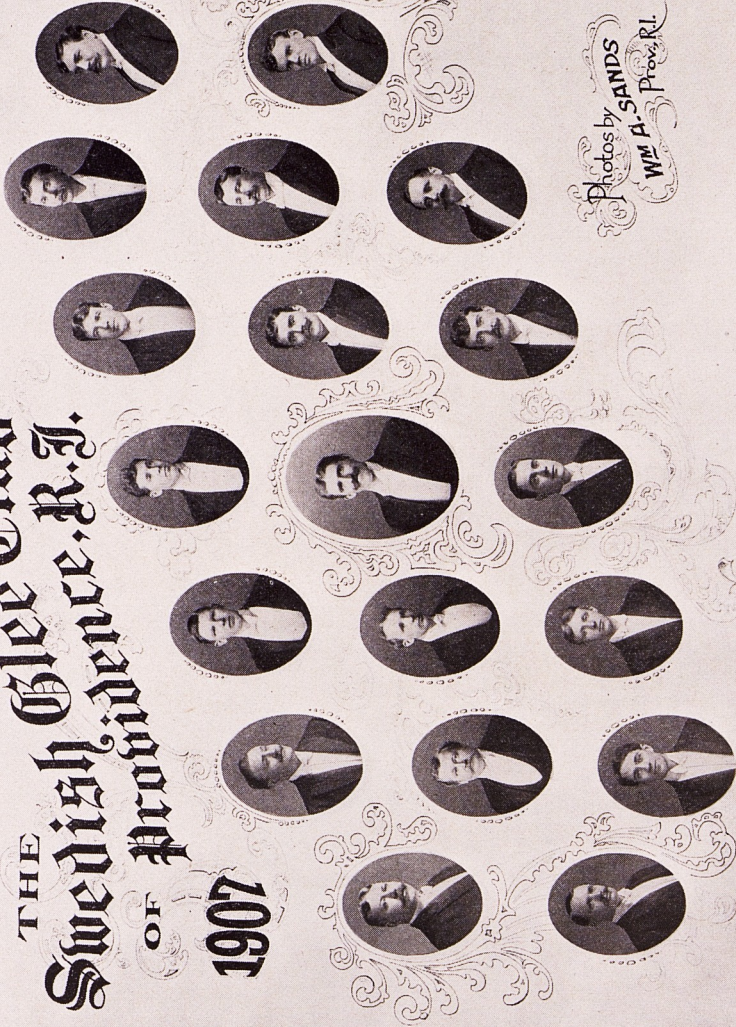 THE
Swedish Glee Club
OF Providence, R.I.
1907
Photos by
WM A. SANDS
Prov, R.I.